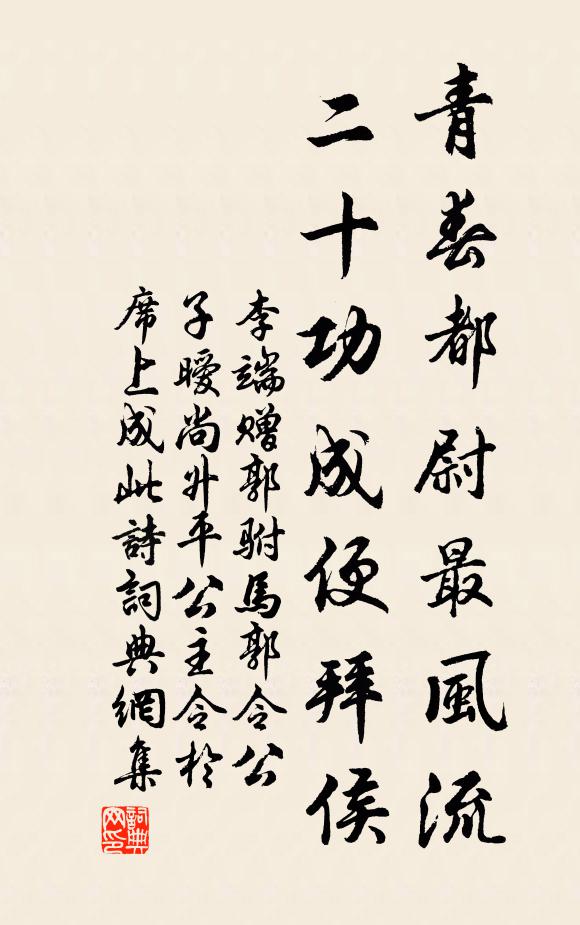 青春都尉最風流
二十功成便拜侯
李端赠郭駙馬郭令公
子曖尚升平公主令於
席上成此詩詞典網集
詞典網印